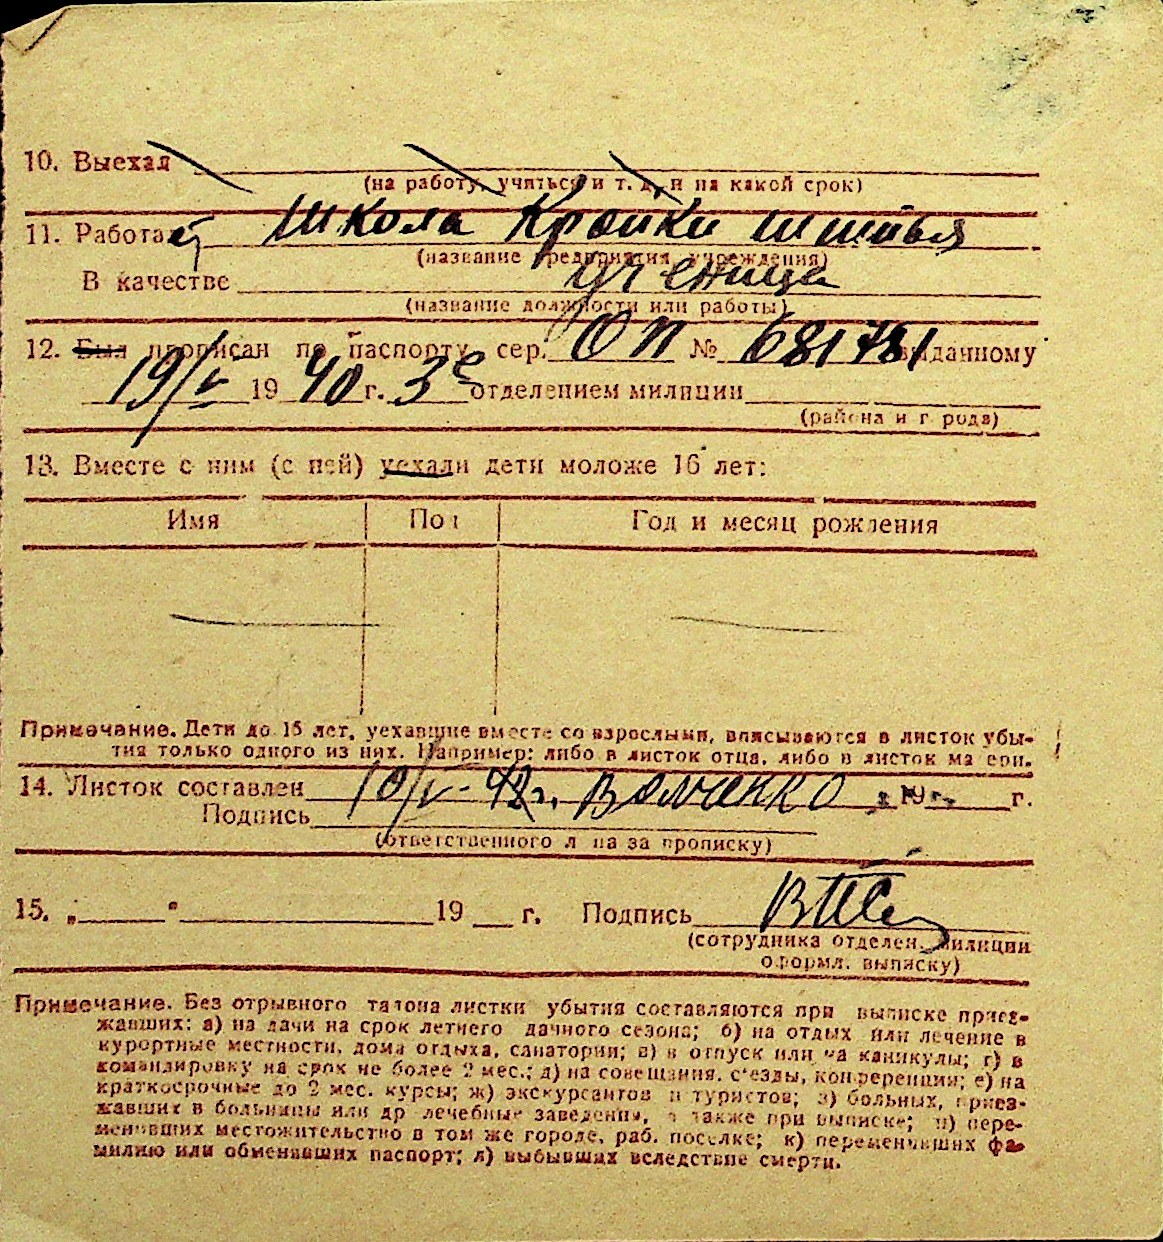 10. Выехал
(на работу, учиться и т. д. и на какой срок)
11. Работает Школа Кройки и шитья
(название предприятия, учреждения)
В качестве ученица
(название должности или работы)
12. Был прописан по паспорту сер. ОП № 681781 выданному
19/V 1940 г. 3е отделением милиции
(района и города)
13. Вместе с ним (с ней) уехали дети моложе 16 лет:
Имя Пол Год и месяц рождения
Примечание. Дети до 15 лет, уехавшие вместе со взрослыми, вписываются в листок убы-
тия только одного из них. Например: либо в листок отца, либо в листок матери.
14. Листок составлен 10/V-42г. 19 г.
Подпись
(ответственного лица за прописку)
15. „ " 19 г. Подпись
(сотрудника отделен. милиции
оформл. выписку)
Примечание. Без отрывного талона листки убытия составляются при выписке приез-
жавших: а) на дачи на срок летнего дачного сезона; б) на отдых или лечение в
курортные местности, дома отдыха, санатории; в) в отпуск или на каникулы; г) в
командировку на срок не более 2 мес.; д) на совещания, съезды, конференции; е) на
краткосрочные до 2 мес. курсы; ж) экскурсантов и туристов; з) больных, приез-
жавших в больницы или др лечебные заведения, а также при выписке; и) пере-
менивших местожительство в том же городе, раб. поселке; к) переменивших фа-
милию или обменявших паспорт; л) выбывших вследствие смерти.